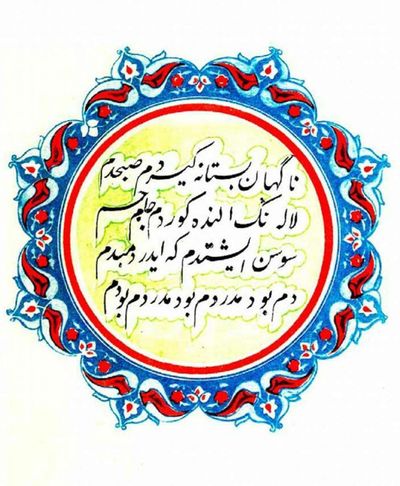 ناگهان بستانه گیردم صبحدم
لاله نڭ النده کوردم جام جم
سوسن ایشتدم که ایدر دمبدم
دم بو دمدر دم بو دمدر دم بودم